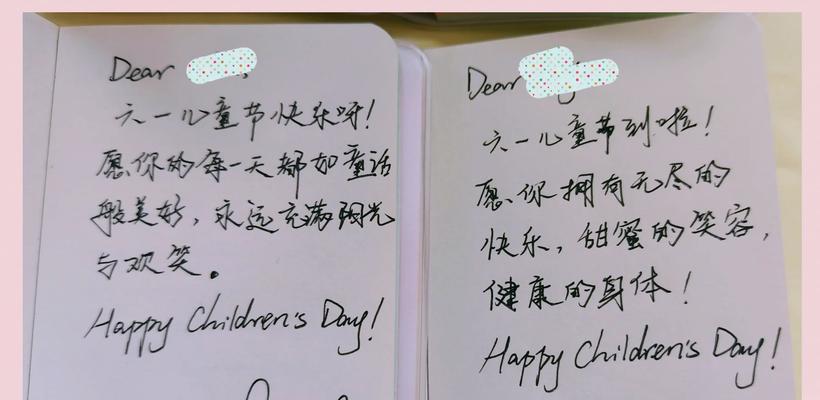 Dear
六一儿童节快乐呀!
愿你的每一天都如童话
般美好,永远充满阳光
与欢笑。
Happy Children's Day!
Dear
六一儿童节到啦!
愿你拥有无尽的
快乐,甜蜜的笑容,
健康的身体!
Happy Children's Day!